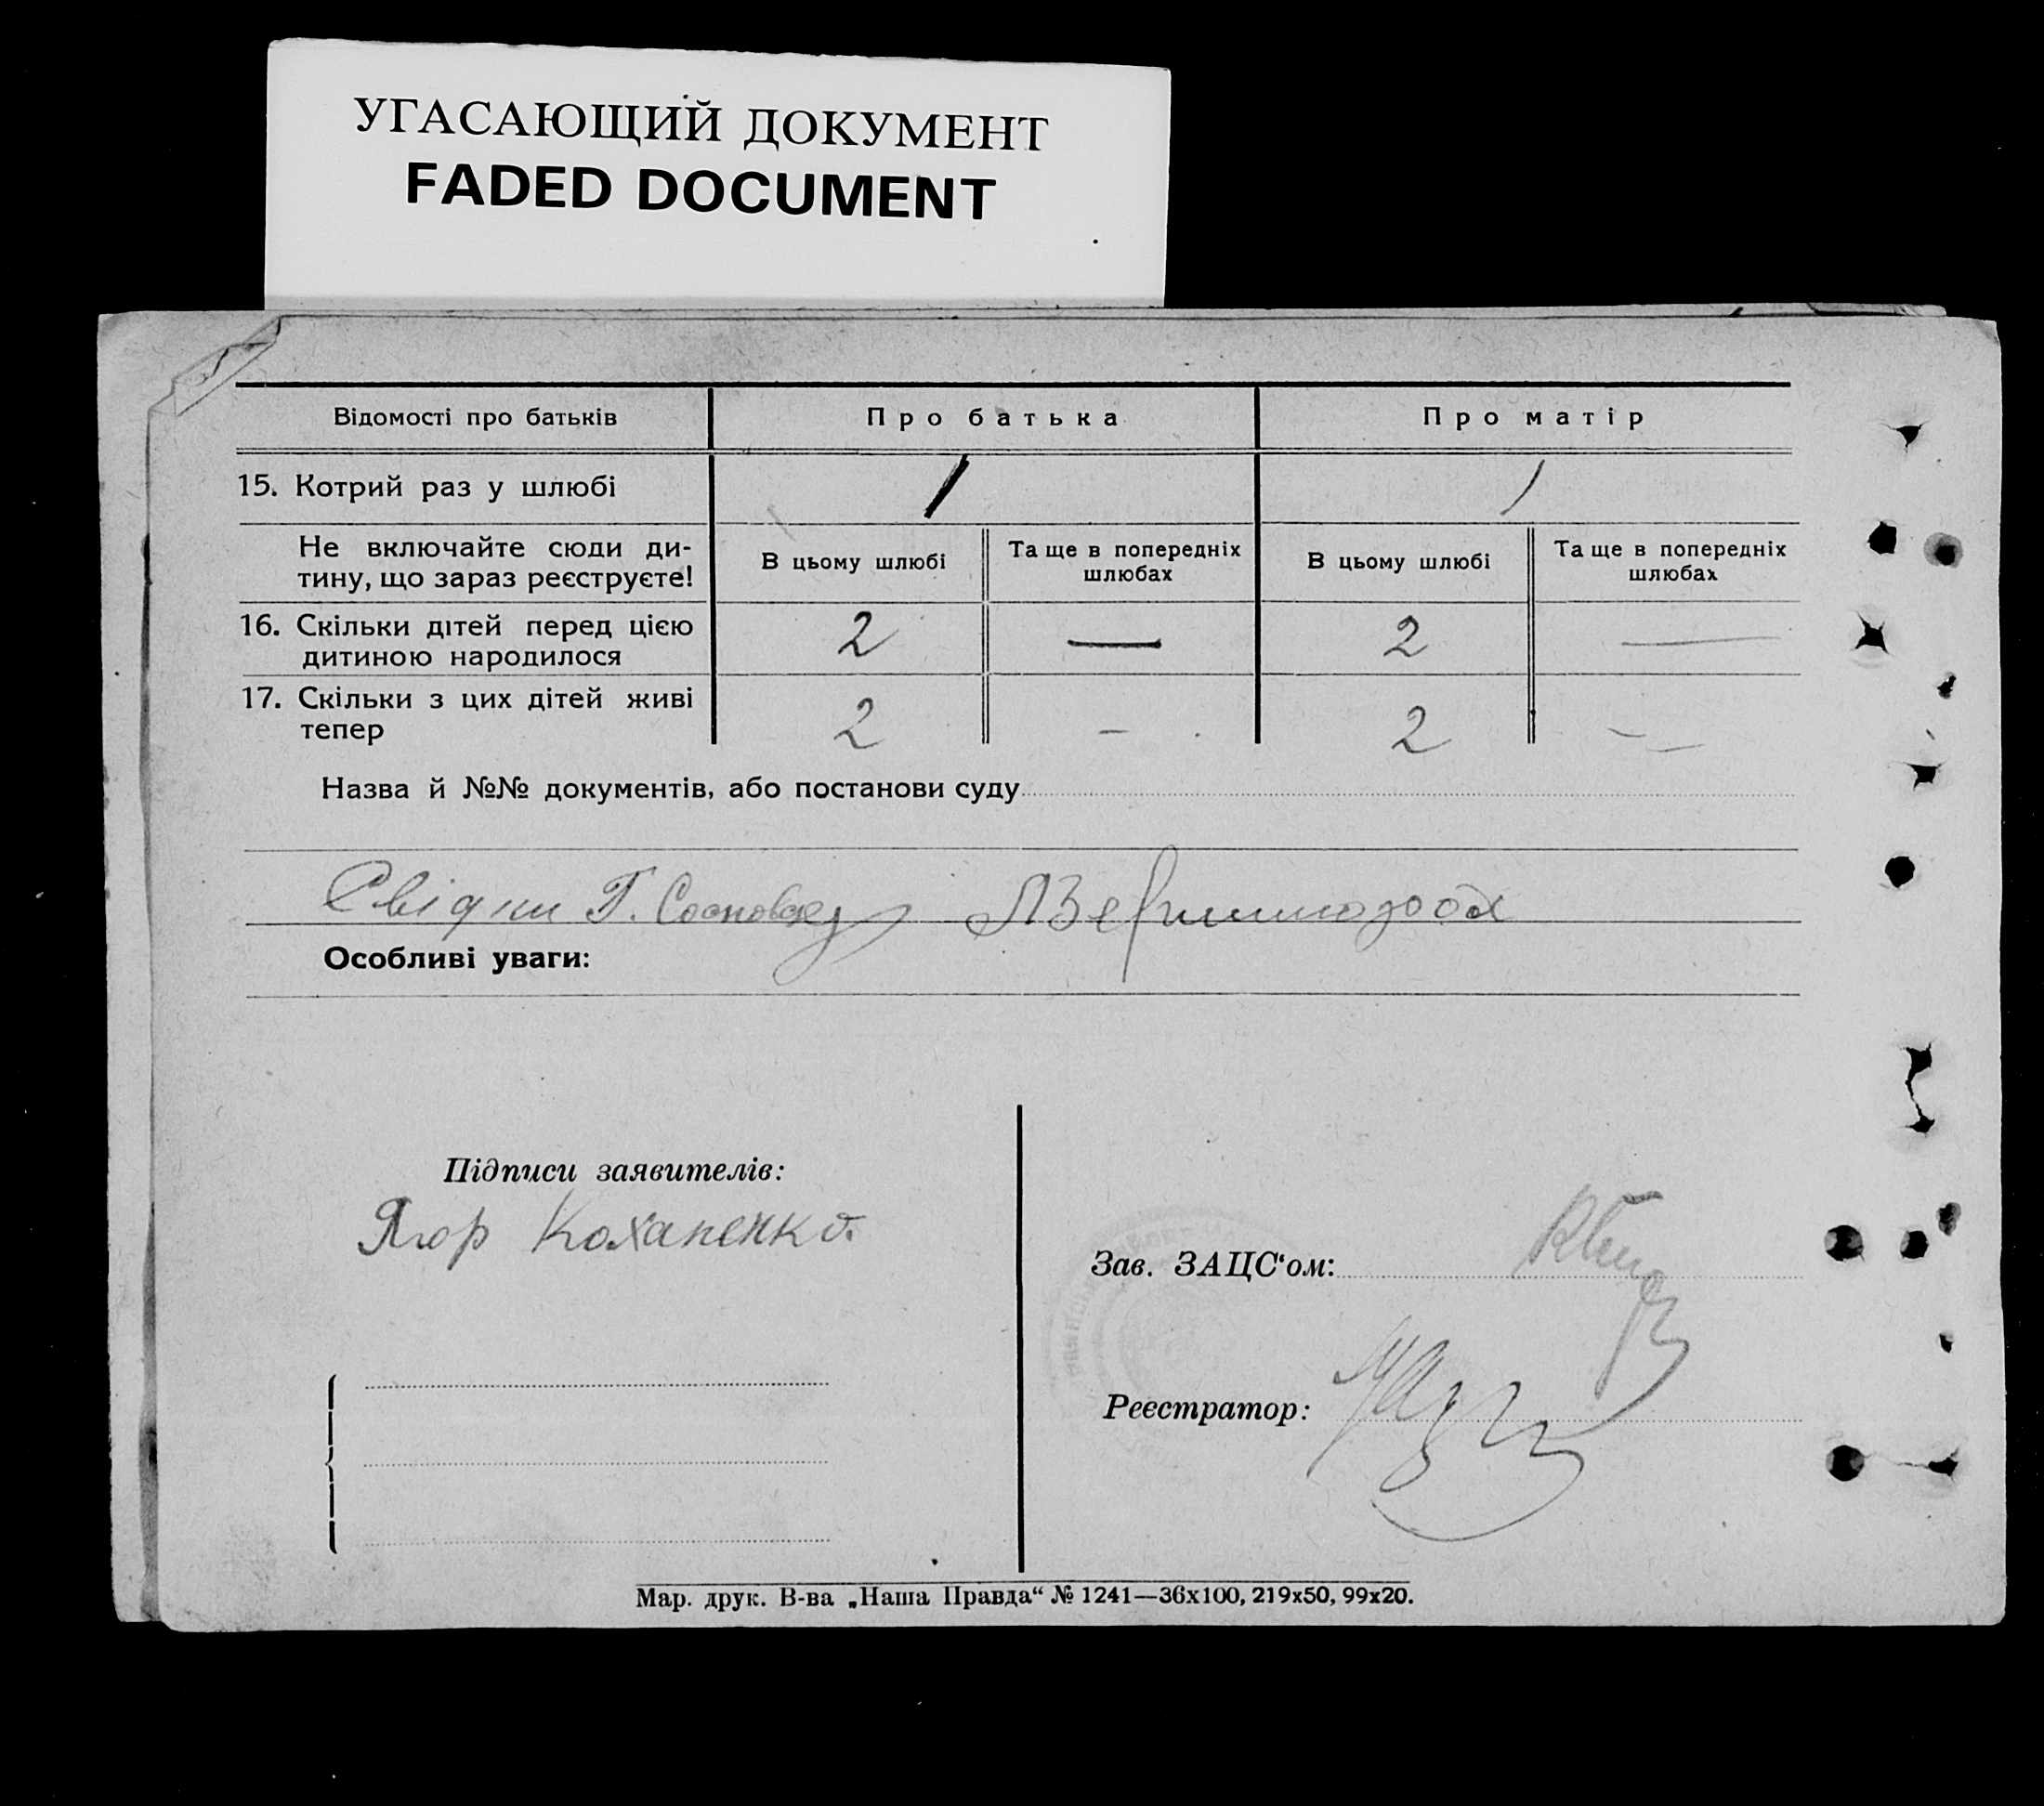 УГАСАЮЩИЙ ДОКУМЕНТ
FADED DOCUMENT
Відомості про батьків Про батька Про матір
15. Котрий раз у шлюбі 1 1
Не включайте сюди ди-
тину, що зараз реєструєте!
В цьому шлюбі
Та ще в попередніх
шлюбах
В цьому шлюбі
Та ще в попередніх
шлюбах
16. Скільки дітей перед цією
дитиною народилося
2 — 2 —
17. Скільки з цих дітей живі
тепер
2 – 2 – –
Назва й №№ документів, або постанови суду
Свідки Г.
Особливі уваги:
Підписи заявителів:
Коханенко
Зав. ЗАЦС‘ом:
Реєстратор:
Мар. друк. В-ва „Наша Правда“ № 1241—36х100, 219х50, 99х20.